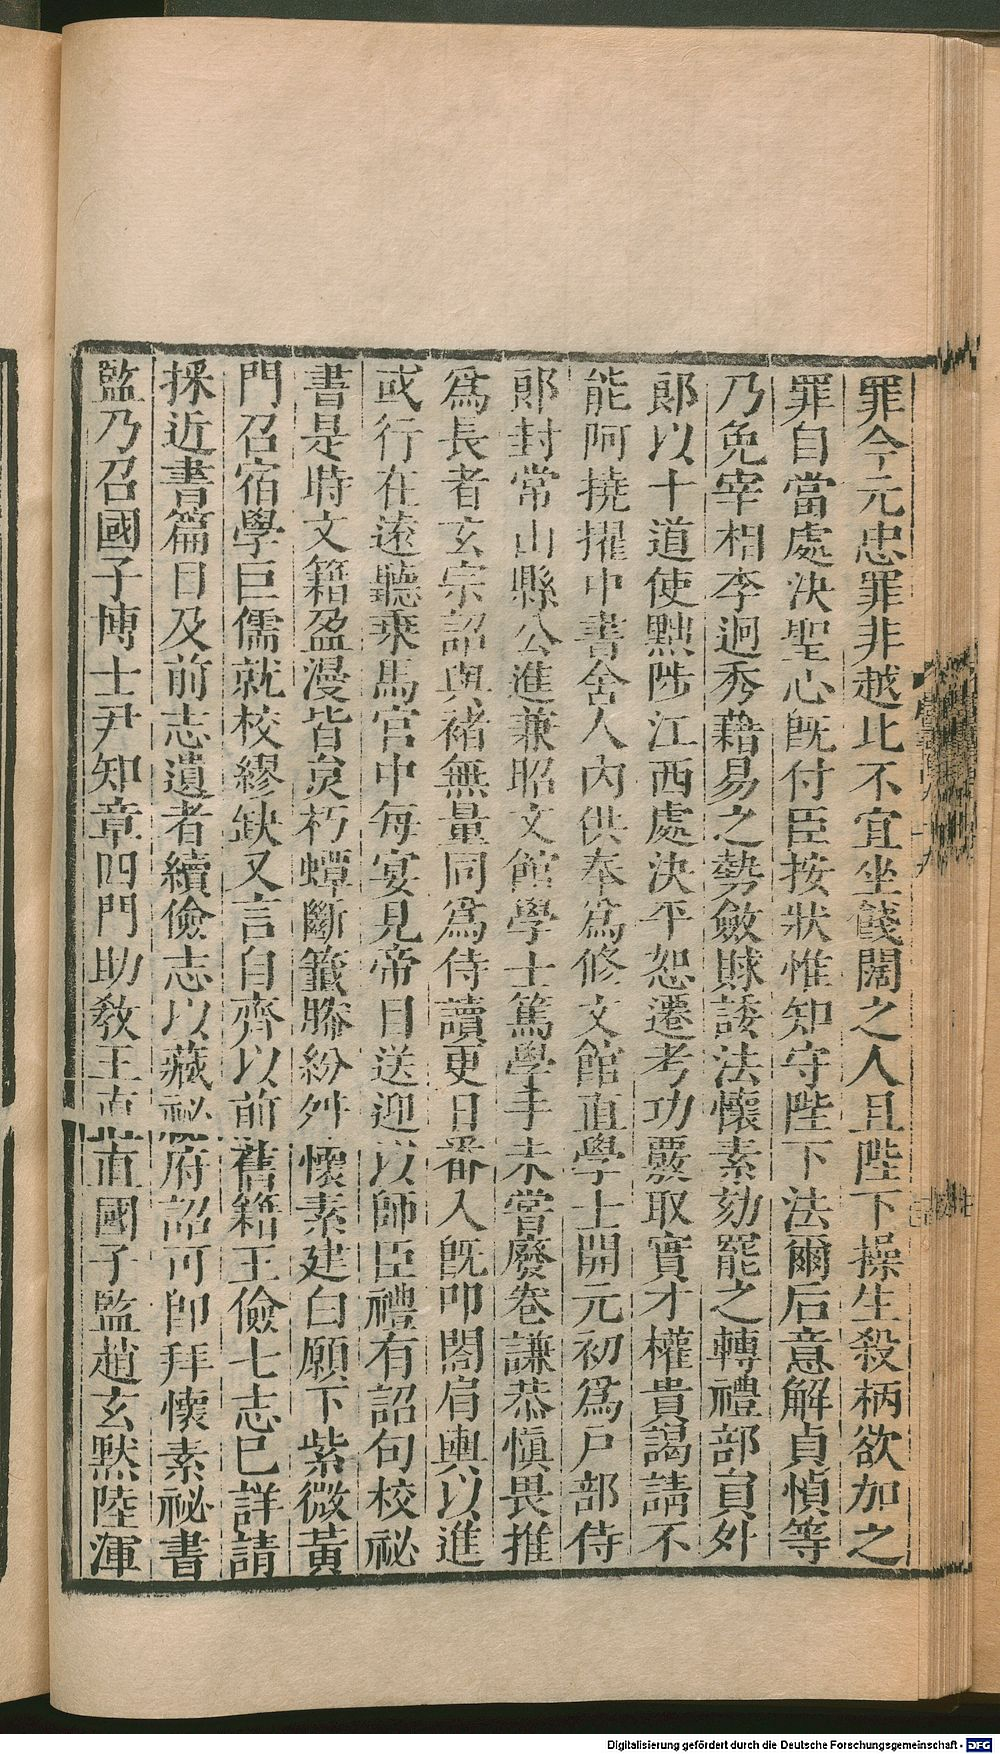 罪今元忠罪非越比不宜坐餞闊之人且陛下操生殺柄欲加之
罪自當處決聖心既付臣按狀惟知守陛下法爾后意解貞慎等
乃免宰相李迥秀藉易之勢斂賕諉法懷素劾罷之轉禮部員外
郎以十道使黜陟江西處決平恕遷考功覈取實才權貴謁請不
能阿撓擢中書舍人內供奉爲修文館直學士開元初爲戶部侍
郎封常山縣公進兼昭文館學士篤學手未嘗廢卷謙恭慎畏推
爲長者玄宗詔與褚無量同爲侍讀更日番入既叩閤肩輿以進
或行在遠聽乘馬宮中每宴見帝自送迎以師臣禮有詔句校祕
書是時文籍盈漫皆炱朽蟫斷籤幐紛舛懷素建白願下紫微黃
門召宿學巨儒就校繆缺又言自齊以前舊籍王儉七志已詳請
採近書篇目及前志遺者續儉志以藏祕府詔可卽拜懷素祕書
監乃召國子博士尹知章四門助教王直直國子監趙玄默陸渾
Digitalisierung gefördert durch die Deutsche Forschungsgemeinschaft - DFG